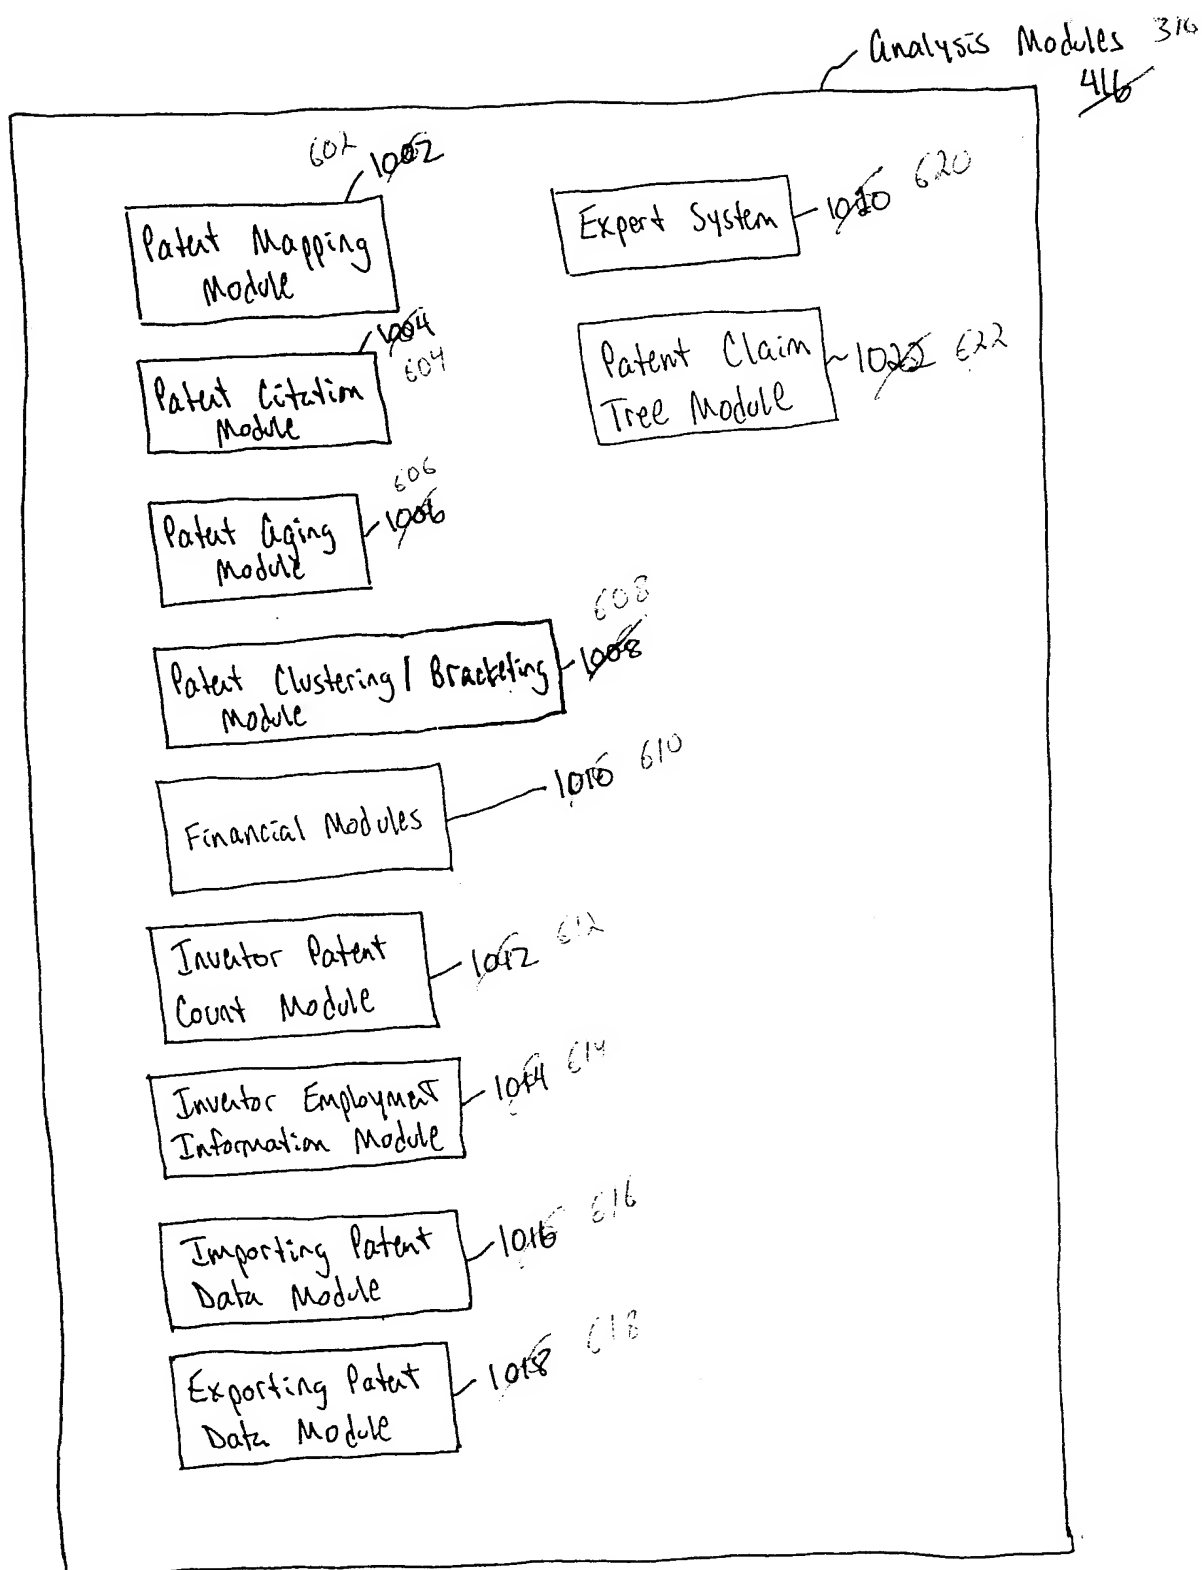 Analysis Modules 316
416
602
1002
Patent Mapping
Module
1004
604
Patent Citation
Module
606
1006
Patent Aging
Module
608
1008
Patent Clustering / Bracketing
Module
1010 610
Financial Modules
1012 612
Inventor Patent
Count Module
1014 614
Inventor Employment
Information Module
1016 616
Importing Patent
Data Module
1018 618
Exporting Patent
Data Module
Expert System
1020 620
Patent Claim
Tree Module
1022 622